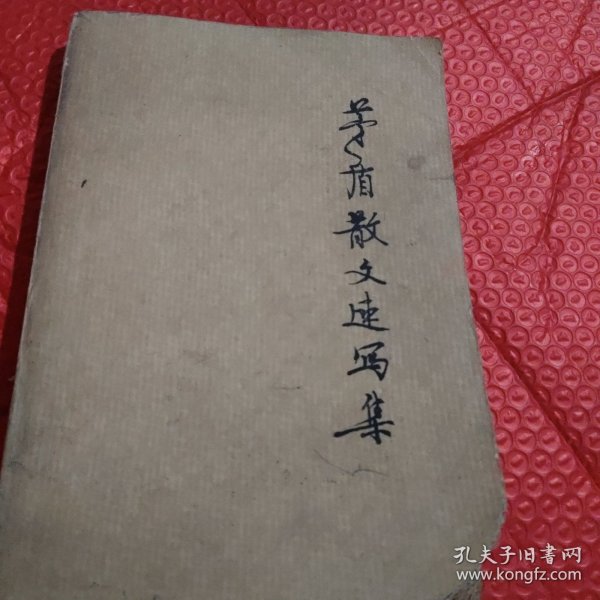 茅盾散文速写集
孔夫子旧書网
www.kongfz.com